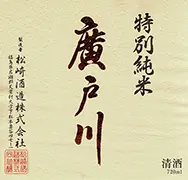 特別純米
廣戸川
製造者
松崎酒造株式会社
清酒
720ml